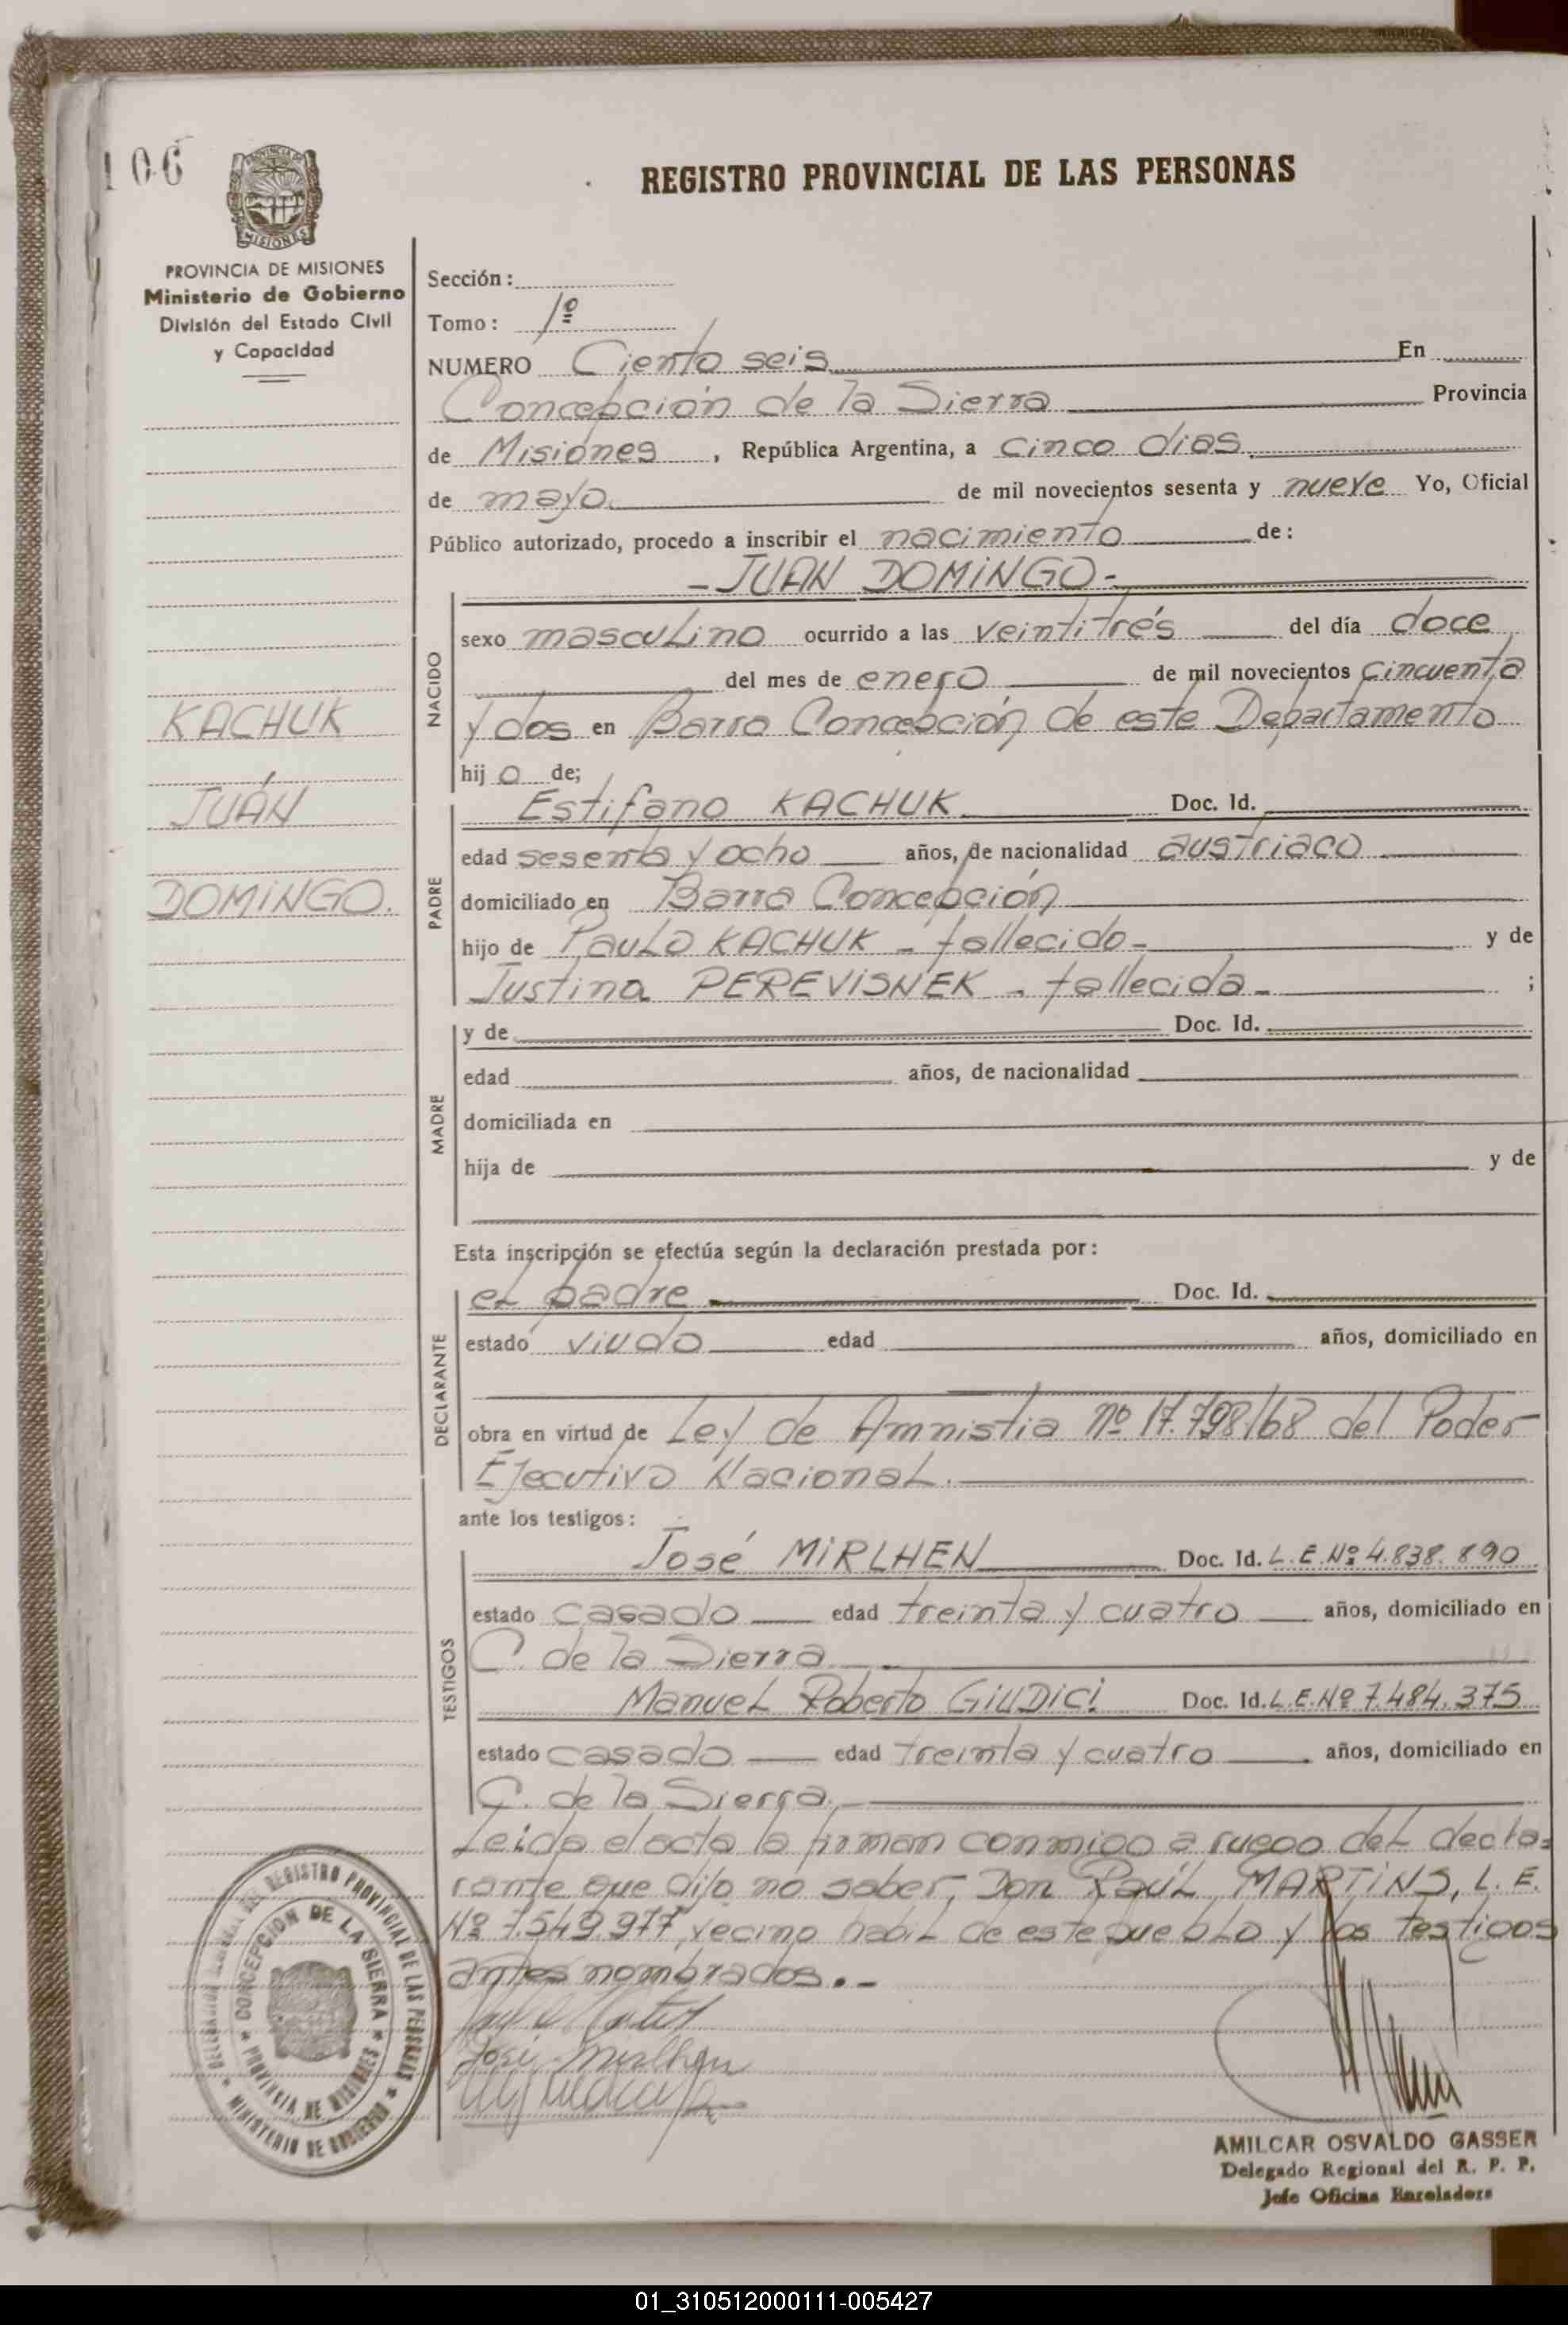 106
PROVINCIA DE
MISIONES
REGISTRO PROVINCIAL DE LAS PERSONAS
PROVINCIA DE MISIONES
Ministerio de Gobierno
División del Estado Civil
y Capacidad
KACHUK
JUÁN
DOMINGO.
Sección:
Tomo: 1º
NUMERO Ciento seis En
Concepción de la Sierra Provincia
de Misiones, República Argentina, a cinco días
de mayo. de mil novecientos sesenta y nueve Yo, Oficial
Público autorizado, procedo a inscribir el nacimiento de:
- JUAN DOMINGO -
NACIDO
sexo masculino ocurrido a las veintitrés del día doce
del mes de enero de mil novecientos cincuenta
y dos en Barra Concepción de este Departamento
hijo de;
PADRE
Estifano KACHUK Doc. Id.
edad sesenta y ocho años, de nacionalidad austriaco
domiciliado en Barra Concepción
hijo de Paulo KACHUK - fallecido - y de
Justina PEREVISNEK - fallecida - ;
MADRE
y de Doc. Id.
edad años, de nacionalidad
domiciliada en
hija de y de
Esta inscripción se efectúa según la declaración prestada por:
DECLARANTE
el padre Doc. Id.
estado viudo edad años, domiciliado en
obra en virtud de Ley de Amnistia nº 17.798/68 del Poder
Ejecutivo Nacional.
ante los testigos:
TESTIGOS
José MIRLHEN Doc. Id. L.E.Nº 4.838.890
estado casado edad treinta y cuatro años, domiciliado en
C. de la Sierra
Manuel Roberto GIUDICI Doc. Id. L.E.Nº 7.484.375
estado casado edad treinta y cuatro años, domiciliado en
C. de la Sierra.
Leida el acta la firman conmigo a ruego del decla=
rante que dijo no saber, Don Raúl MARTINS, L.E.
Nº 7.549.977, vecino habil de este pueblo y los testigos
antes nombrados. -
José Mirlhen
REGISTRO PROVINCIAL DE LAS PERSONAS
MINISTERIO DE GOBIERNO
CONCEPCION DE LA SIERRA
PROVINCIA DE MISIONES
AMILCAR OSVALDO GASSER
Delegado Regional del R. P. P.
Jefe Oficina Enroladora
01_310512000111-005427